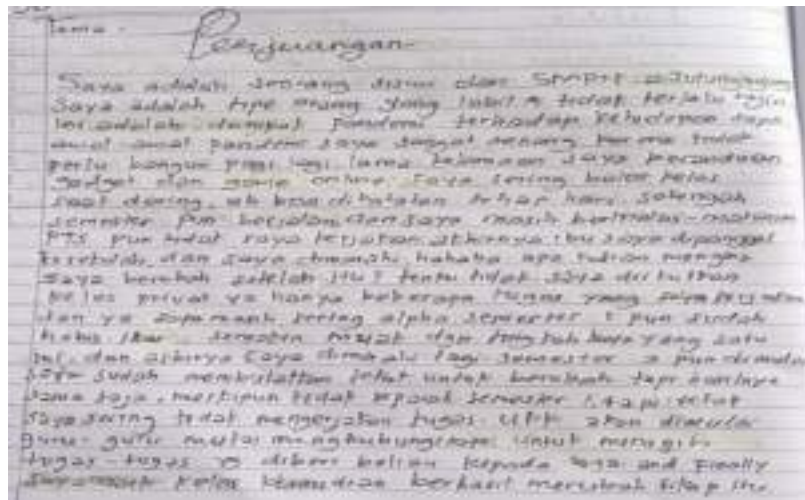 Tema -
Perjuangan
Saya adalah seorang siswi dari SMPN 2
Saya adalah tipe orang yang labil & tidak terlalu rajin
ini adalah dampak pandemi terhadap kehidupan saya
awal-awal pandemi saya sangat senang karena tidak
perlu bangun pagi lagi lama kelamaan saya kecanduan
gadget dan game online. Saya sering bolos kelas
saat daring, bisa dikatakan tiap hari. Setengah
semester pun berjalan dan saya masih bermalas-malasan
PTS pun tidak saya kerjakan. akhirnya ibu saya dipanggil
kesekolah, dan saya dimarahi hahaha apa kalian mengira
saya berubah setelah itu? tentu tidak saya diikutkan
kelas privat ya hanya beberapa tugas yang saya
dan ya saya masih sering alpha semester 1 pun sudah
habis semakin dan yang satu
ini, dan akhirnya saya dimarahi lagi semester 2 pun dimulai
saya sudah membulatkan tekat untuk berubah tapi hasilnya
sama saja, meskipun tidak separah semester 1, tapi tetap
saya sering tidak mengerjakan tugas. akan dimulai
guru-guru mulai menghubungi untuk
tugas-tugas yg diberi beliau kepada saya and finally
saya naik kelas kemudian berhasil merubah sikap ini